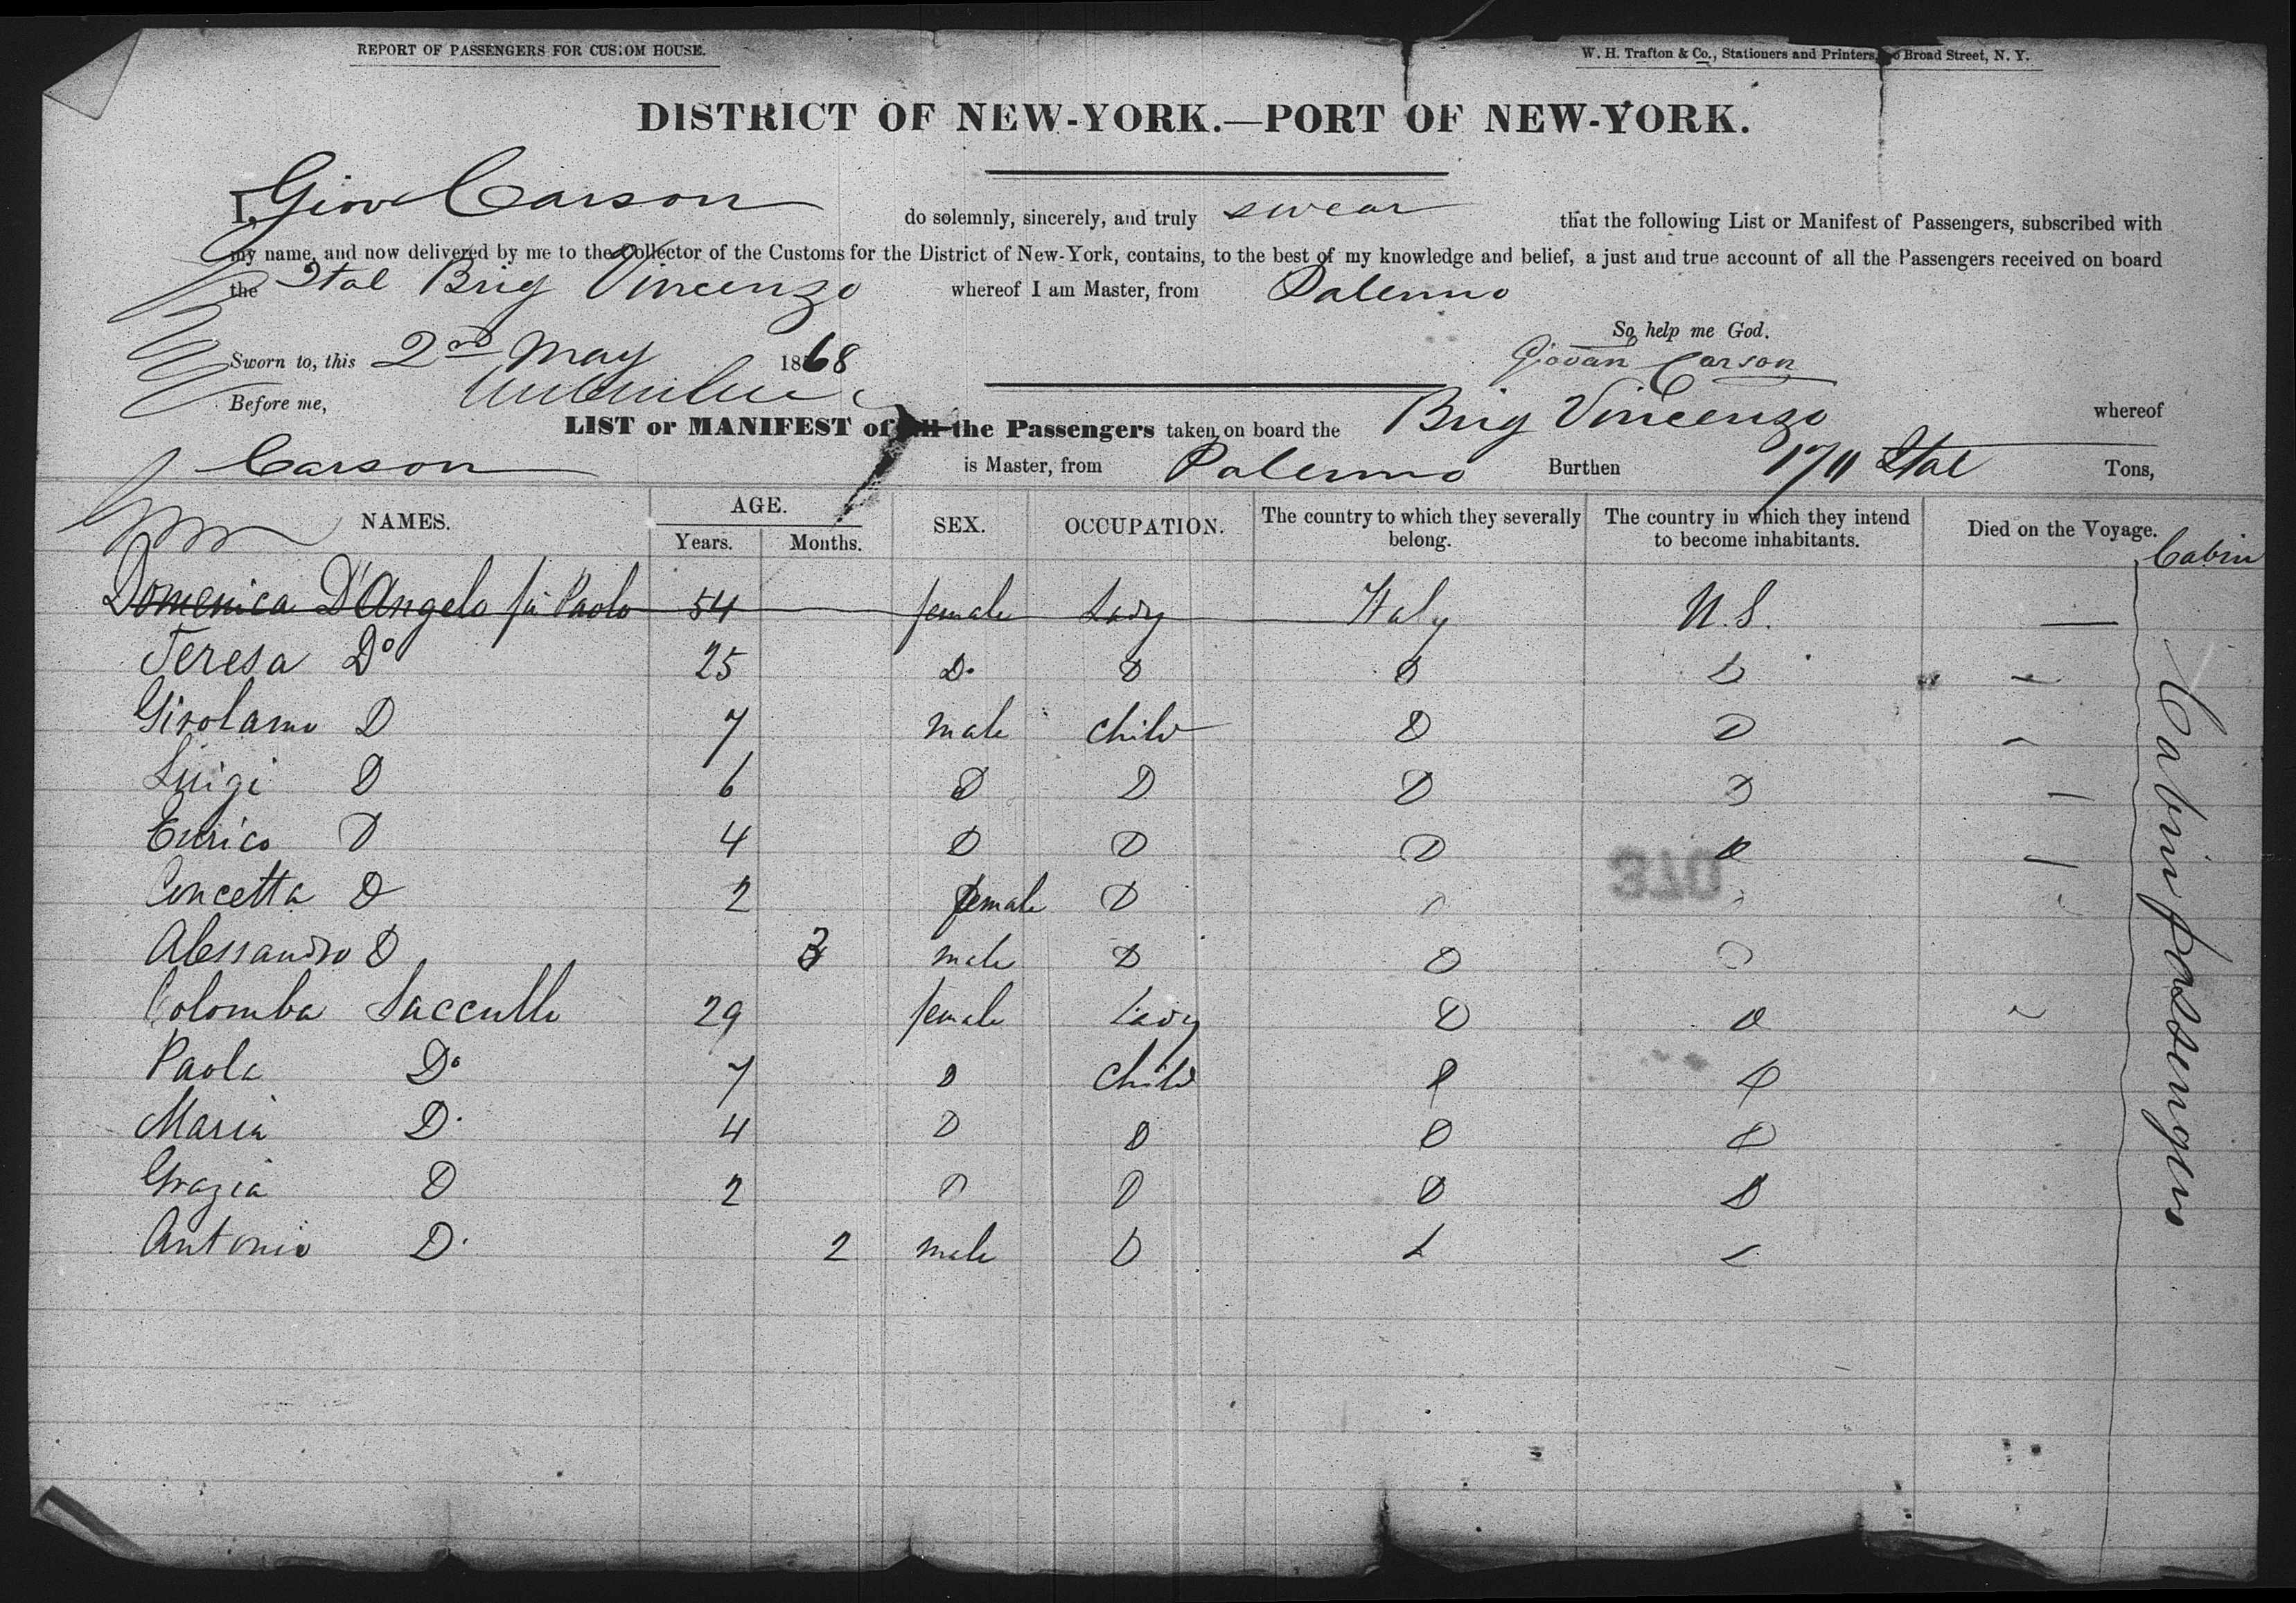 REPORT OF PASSENGERS FOR CUSTOM HOUSE.
W. H. Trafton & Co., Stationers and Printers, Broad Street, N. Y.
DISTRICT OF NEW-YORK.—PORT OF NEW-YORK.
I, Giov Carson do solemnly, sincerely, and truly swear that the following List or Manifest of Passengers, subscribed with
my name, and now delivered by me to the Collector of the Customs for the District of New-York, contains, to the best of my knowledge and belief, a just and true account of all the Passengers received on board
the Ital Brig Vincenzo whereof I am Master, from Palermo
So help me God.
Sworn to, this 2nd May 1868 Giovan Carson
Before me,
LIST or MANIFEST of all the Passengers taken on board the Brig Vincenzo whereof
Carson is Master, from Palermo Burthen Ital Tons,
NAMES. AGE. Years. Months. SEX. OCCUPATION. The country to which they severally belong. The country in which they intend to become inhabitants. Died on the Voyage.
Cabin
Domenica D'Angelo fu Paolo 54 female Lady Italy U.S. —
Teresa Do 25 D. D D D
Girolamo D 7 male child D D
Luigi D 6 D D D D
Enrico D 4 D D D D
Concetta D 2 female D
Alessandro D 3 male D D D
Colomba 29 female Lady D D
Paola Do 7 D child D D
Maria D. 4 D D D D
Grazia D 2 D D D D
Antonio D. 2 male D
Cabin passengers